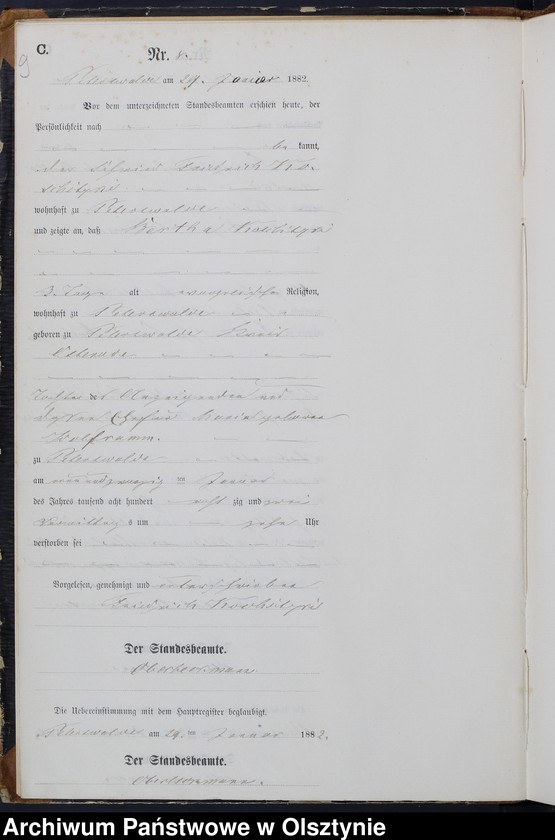 C.
9
Nr. 8.
Peterswalde am 29. Januar 1882.
Vor dem unterzeichneten Standesbeamten erschien heute, der
Persönlichkeit nach
be kannt,
der Friedrich
wohnhaft zu Peterswalde
und zeigte an, daß Bertha
3 Tage alt evangelischer Religion,
wohnhaft zu Peterswalde
geboren zu Peterswalde Kreis
Osterode
Tochter des Anzeigenden und
dessen Ehefrau Maria geborenen
Wolframm.
zu Peterswalde
am neunundzwanzig ten Januar
des Jahres tausend acht hundert acht zig und zwei
Vormittag s um zehn Uhr
verstorben sei
Vorgelesen, genehmigt und unterschrieben
Friedrich
Der Standesbeamte.
Die Uebereinstimmung mit dem Hauptregister beglaubigt.
Peterswalde am 29. ten Januar 1882.
Der Standesbeamte.
Archiwum Państwowe w Olsztynie